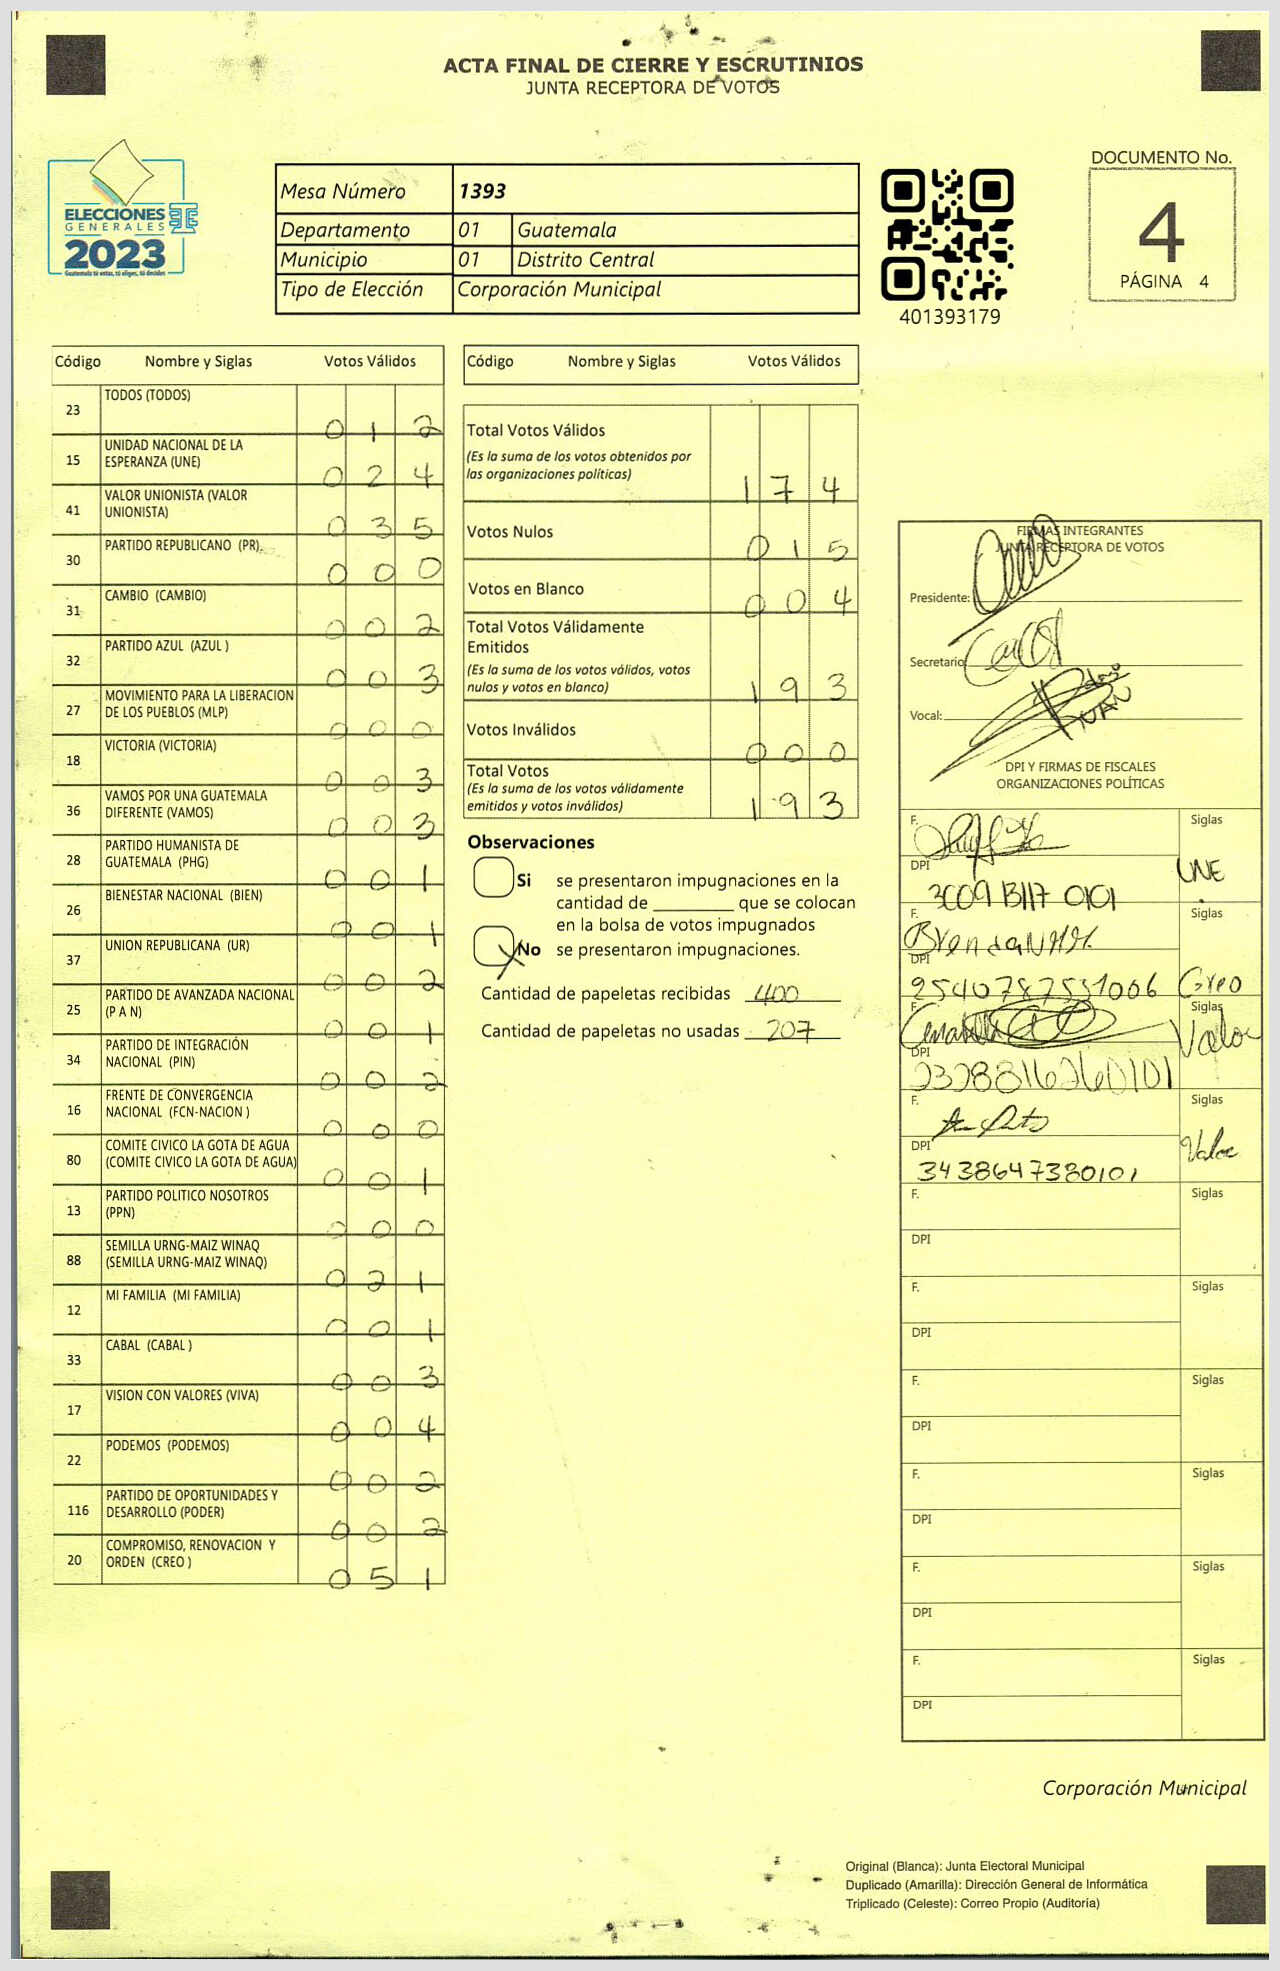 ACTA FINAL DE CIERRE Y ESCRUTINIOS
JUNTA RECEPTORA DE VOTOS
ELECCIONES
GENERALES
2023
Guatemala tú votas, tú eliges, tú decides
Mesa Número 1393
Departamento 01 Guatemala
Municipio 01 Distrito Central
Tipo de Elección Corporación Municipal
401393179
DOCUMENTO No.
4
PÁGINA 4
Código Nombre y Siglas Votos Válidos
23 TODOS (TODOS) 0 1 2
15 UNIDAD NACIONAL DE LA
ESPERANZA (UNE) 0 2 4
41 VALOR UNIONISTA (VALOR
UNIONISTA) 0 3 5
30 PARTIDO REPUBLICANO (PR) 0 0 0
31 CAMBIO (CAMBIO) 0 0 2
32 PARTIDO AZUL (AZUL ) 0 0 3
27 MOVIMIENTO PARA LA LIBERACION
DE LOS PUEBLOS (MLP) 0 0 0
18 VICTORIA (VICTORIA) 0 0 3
36 VAMOS POR UNA GUATEMALA
DIFERENTE (VAMOS) 0 0 3
28 PARTIDO HUMANISTA DE
GUATEMALA (PHG) 0 0 1
26 BIENESTAR NACIONAL (BIEN) 0 0 1
37 UNION REPUBLICANA (UR) 0 0 2
25 PARTIDO DE AVANZADA NACIONAL
(P A N) 0 0 1
34 PARTIDO DE INTEGRACIÓN
NACIONAL (PIN) 0 0 2
16 FRENTE DE CONVERGENCIA
NACIONAL (FCN-NACION ) 0 0 0
80 COMITE CIVICO LA GOTA DE AGUA
(COMITE CIVICO LA GOTA DE AGUA) 0 0 1
13 PARTIDO POLITICO NOSOTROS
(PPN) 0 0 0
88 SEMILLA URNG-MAIZ WINAQ
(SEMILLA URNG-MAIZ WINAQ) 0 2 1
12 MI FAMILIA (MI FAMILIA) 0 0 1
33 CABAL (CABAL ) 0 0 3
17 VISION CON VALORES (VIVA) 0 0 4
22 PODEMOS (PODEMOS) 0 0 2
116 PARTIDO DE OPORTUNIDADES Y
DESARROLLO (PODER) 0 0 2
20 COMPROMISO, RENOVACION Y
ORDEN (CREO ) 0 5 1
Código Nombre y Siglas Votos Válidos
Total Votos Válidos
(Es la suma de los votos obtenidos por
las organizaciones políticas) 1 7 4
Votos Nulos 0 1 5
Votos en Blanco 0 0 4
Total Votos Válidamente
Emitidos
(Es la suma de los votos válidos, votos
nulos y votos en blanco) 1 9 3
Votos Inválidos 0 0 0
Total Votos
(Es la suma de los votos válidamente
emitidos y votos inválidos) 1 9 3
Observaciones
Si se presentaron impugnaciones en la
cantidad de ________ que se colocan
en la bolsa de votos impugnados
X No se presentaron impugnaciones.
Cantidad de papeletas recibidas 400
Cantidad de papeletas no usadas 207
FIRMAS INTEGRANTES
JUNTA RECEPTORA DE VOTOS
Presidente:
Secretario
Vocal:
DPI Y FIRMAS DE FISCALES
ORGANIZACIONES POLÍTICAS
F. Siglas
UNE
DPI
3009 13117 0101
F. Siglas
Brenda
DPI
2540787531006 Creo
F. Siglas
Valor
DPI
2328816260101
F. Siglas
DPI Valor
3438647380101
F. Siglas
DPI
F. Siglas
DPI
F. Siglas
DPI
F. Siglas
DPI
F. Siglas
DPI
F. Siglas
DPI
Corporación Municipal
Original (Blanca): Junta Electoral Municipal
Duplicado (Amarilla): Dirección General de Informática
Triplicado (Celeste): Correo Propio (Auditoría)